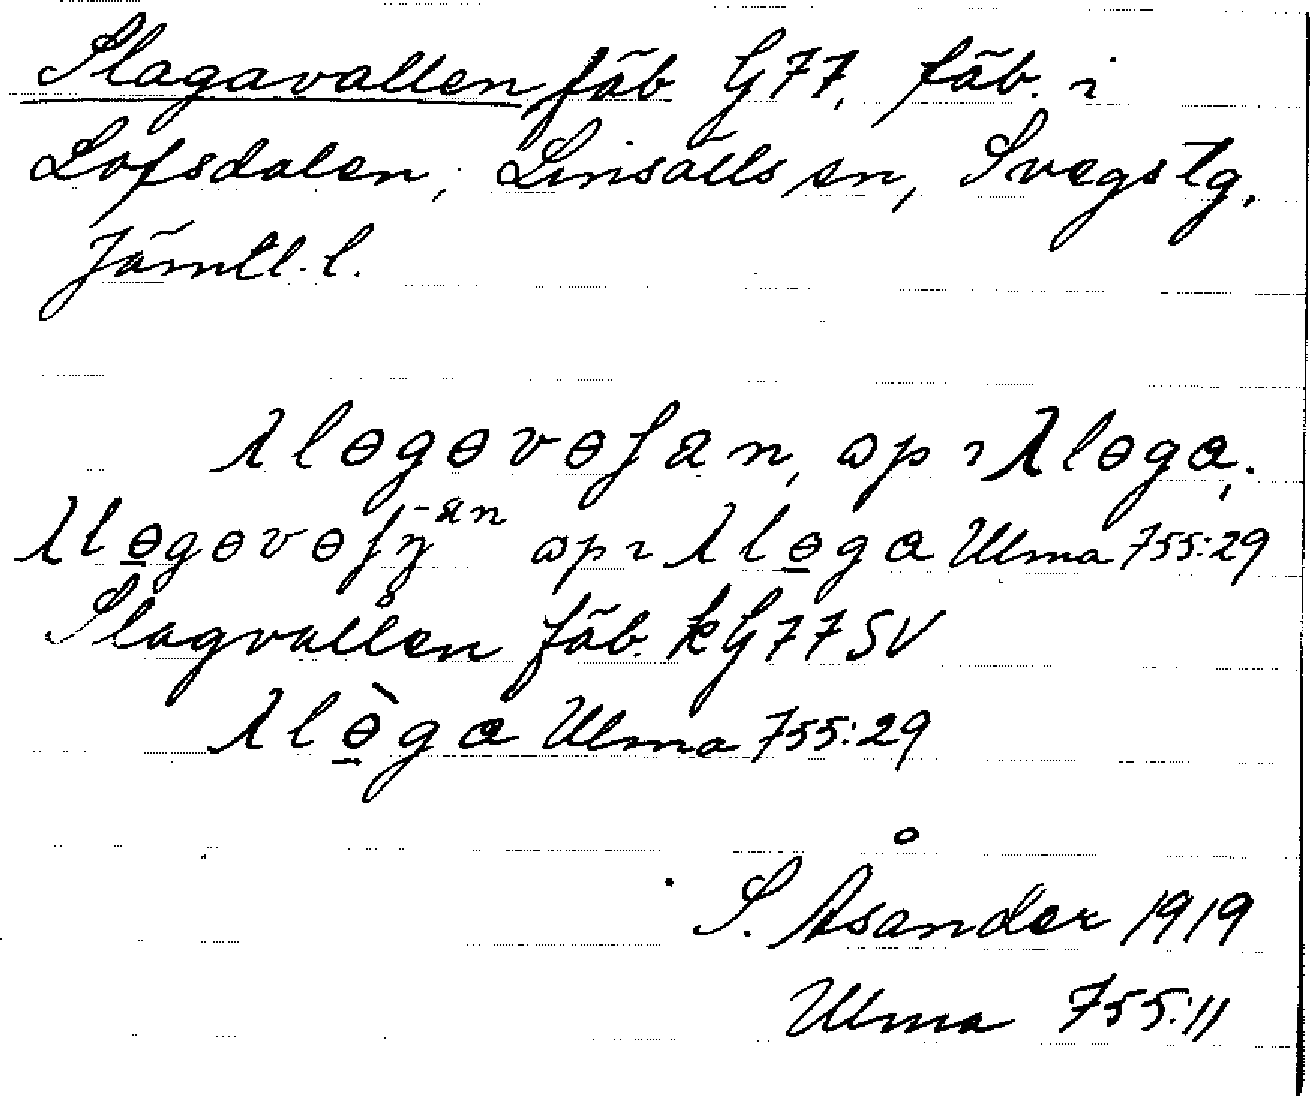 Slagavallen fäb G77, fäb. i
Lofsdalen, Linsälls sn, Svegs tg,
Jämtl. l.
λlɵgɵvɵſan, op ı λlɵga.
λlɵgɵvɵſŋ -an op ı λlɵga Ulma 755:29
Slagvallen fäb. k G77 SV
λlɵ̀ga Ulma 755:29
S. Åsander 1919
Ulma 755:11